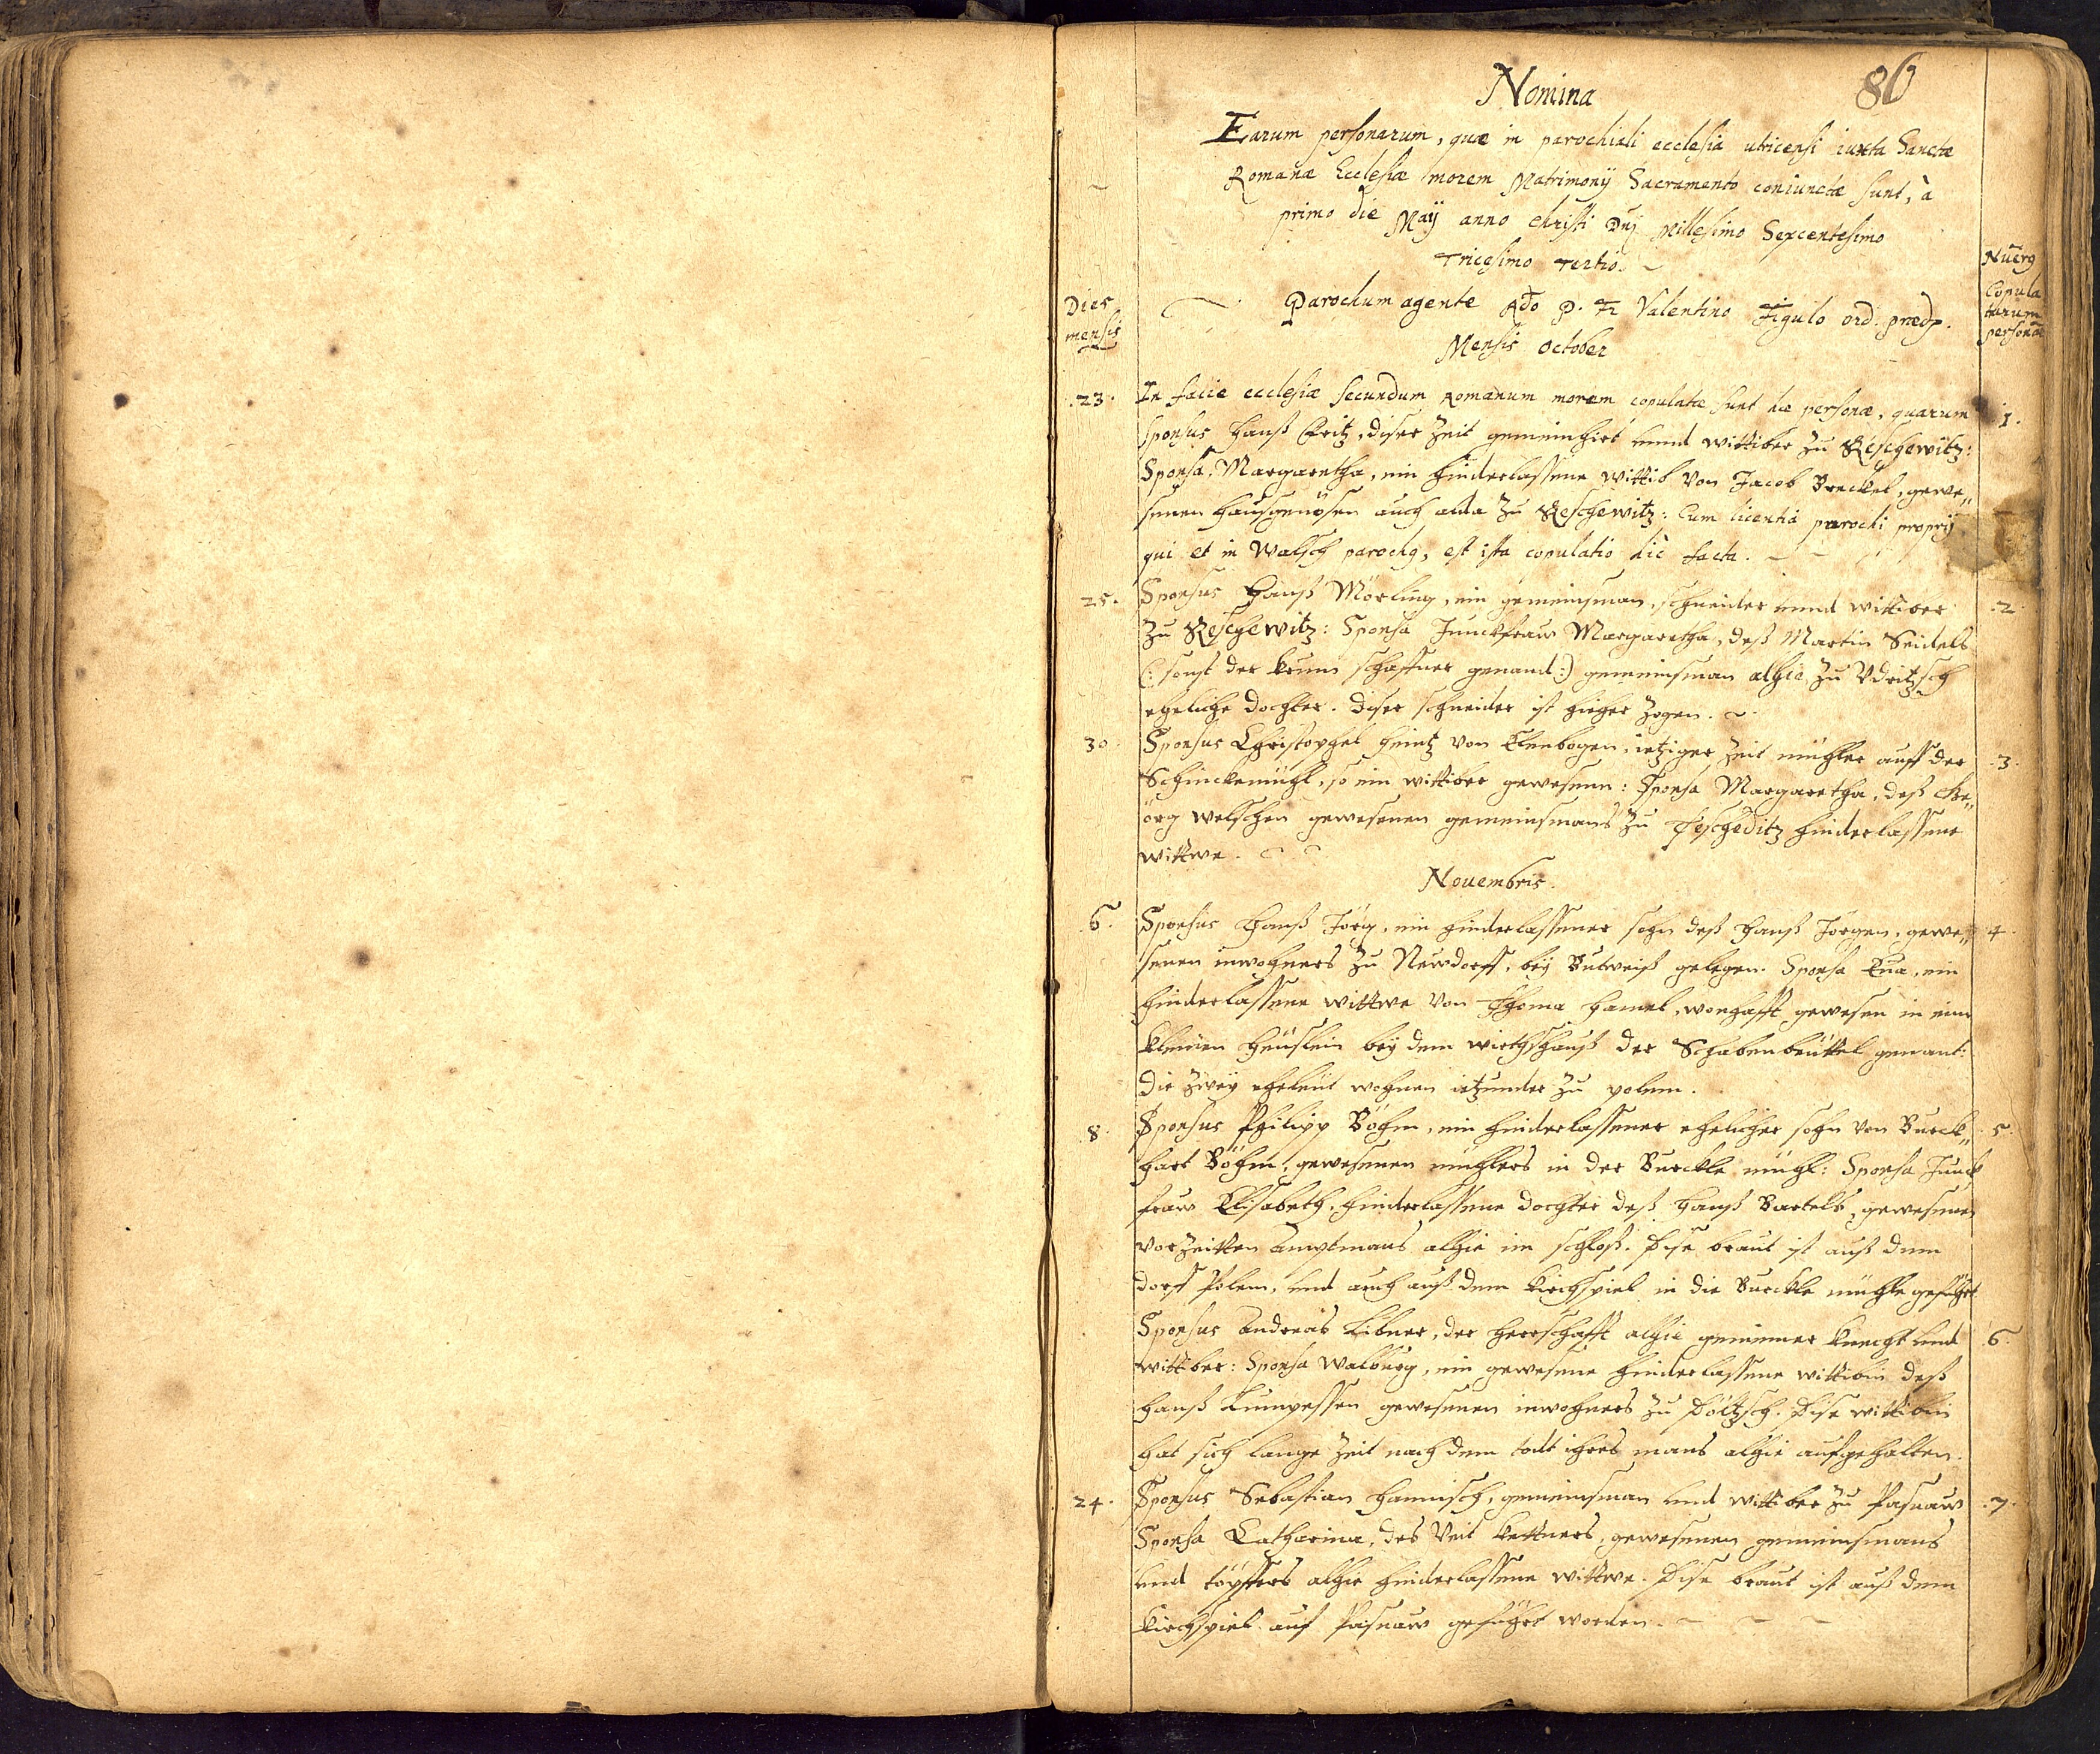 86
Nomina
Earum personarum, quæ in parochiali ecclesia utricensi iuxta Sanctæ
Romanæ Ecclesiæ morem Matrimonij Sacramento coniunctæ sunt, à
primo die Maÿ anno christi Dnj Millesimo Sexcentesimo
Tricesimo Tertio.
Dies
mensis
Parochum agente Rdo P. Fr Valentino Figulo ord. præd.
Copula
tarum
person
Mensis october
23. In facie ecclesiæ secundum Romanum morem copulatæ sunt hæ personæ, quarum 1.
Sponsus Hanß Fritz, diser Zeit gemeinhirt unnd wittiber zu Reschewitz:
Sponsa. Margaretha, ein hinderlassene wittib von Jacob Breckel, gewe„
senen hausgenösen auch alda zu Reschewitz: Cum licentia parochi proprij
qui et in Walsch parochg, est ista copulatio hìc facta.
25. Sponsus Hanß Mörling, ein gemeinsman, schneider unnd wittiber 2.
zu Reschewitz: Sponsa Junckfraw Margaretha, deß Martin Seidels
(: sonst der krum schaffner genand:) gemeinsman alhie zu Udritzsch
eheliche dochter. diser schneider ist hieher zogen.
30 Sponsus Christophel Heintz von Elenbogen, ietziger Zeit mühler auff der 3.
Schinckemühl, so ein wittiber gewesenn: Sponsa Margaretha, deß Ge„
örg welschen gewesenen gemeinsmans zu Tescheditz hinderlassene
wittwe.
Nouembris.
6. Sponsus Hanß Jörg, ein hinderlassener sohn deß Hanß Jörgen, gewe„ 4.
senen inwohners zu Newdorff, bey Butweiß gelegen. Sponsa Eua, ein
hinderlassene wittwe von Thoma Hamel, wonhafft gewesen in einn
kleinen heuslein bey dem wirthshauß der Schabenbeuttel genant:
die zwey eheleut wohnen ietzunder zu polem.
8. Sponsus Philipp Böhm, ein hinderlassener ehelicher sohn von Burck„ 5.
hart Böhm, gewesenen mühlers in der Burckle mühl: Sponsa Junck
fraw Elisabeth, hinderlassene dochter deß Hanß Bartels, gewesenen
vorzeitten Amptmans alhie im schloß. Dise braut ist auß dem
dorff Polem, und auch auß dem kirchspiel in die Burckle mühle geführt
Sponsus Andreas Libner, der herrschafft alhie gemeiner knecht und 6
wittiber: Sponsa Walburg, ein gewesene hinderlassene wittibin deß
Hanß gewesenen inwohners zu Döltzsch. Dise wittibin
hat sich lange Zeit nach dem todt ihres mans alhie aufgehalten.
24. Sponsus Sebastian Hamisch, gemeinsman und wittiber zu Pasnaw 7.
Sponsa Catharina, des Veit Kettners, gewesenen gemeinsmans
und töpffers alhie hinderlassene wittwe. Dise braut ist auß dem
kirchspiel auf Pasnaw geführt worden.